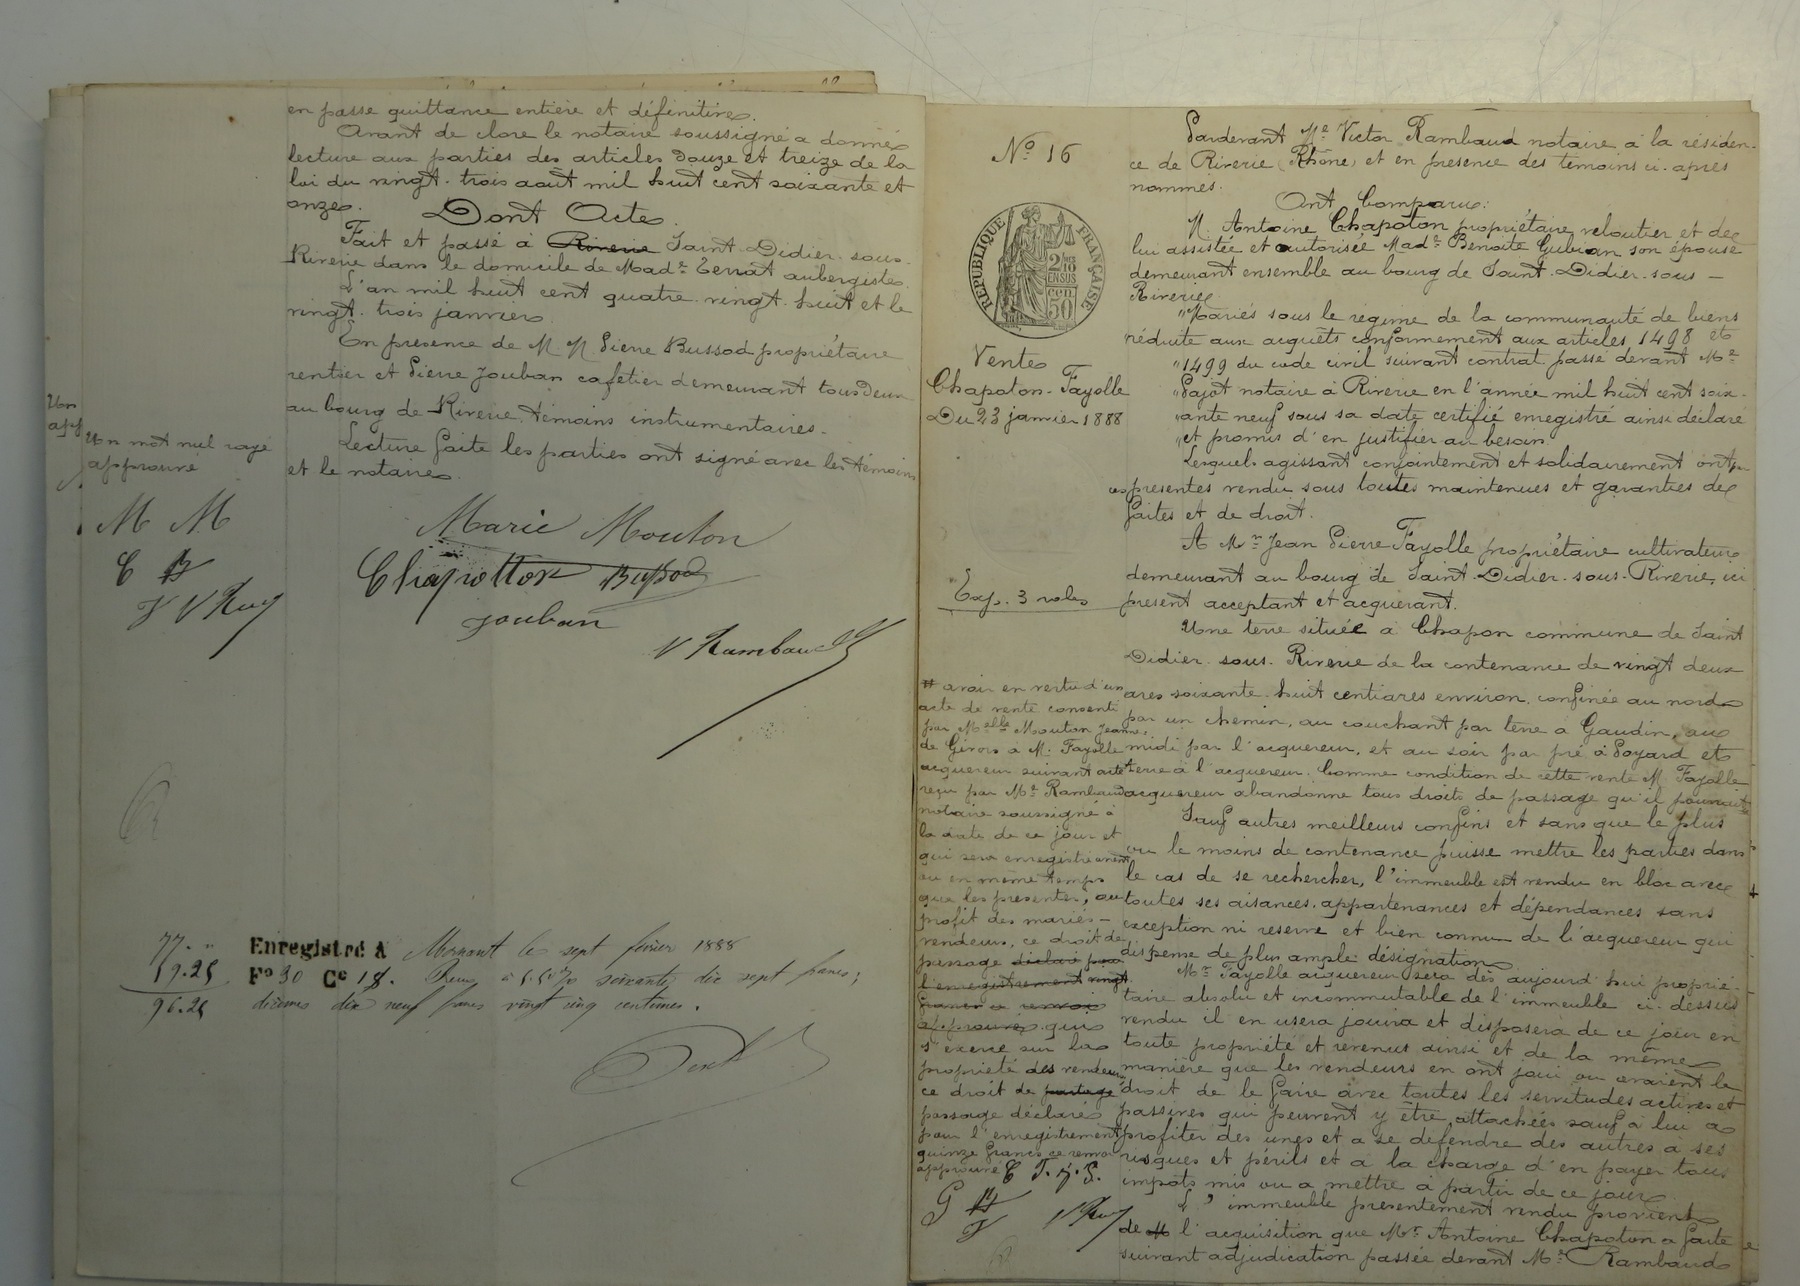 en passe quittance entière et définitive.
Avant de clore le notaire soussigné a donné
lecture aux parties des articles douze et treize de la
loi du vingt-trois aout mil huit cent soixante et
onze.
Dont Acte.
Fait et passé à Riverie Saint-Didier-sous-
Riverie dans le domicile de Made Terrat aubergiste.
L'an mil huit cent quatre-vingt-huit et le
vingt-trois janvier
En présence de M.M. Pierre Bussod propriétaire
rentier et Pierre Jouban cafetier demeurant tous deux
au bourg de Riverie témoins instrumentaires.
Lecture faite les parties ont signé avec les témoins
et le notaire.
Un mot nul rayé
approuvé
M M
C B
J V Ram
Marie Mouton
Chapotton Bussod
Jouban
V Rambaud
77. "
19.25
96.25
Enregistré à Mornant le sept février 1888
Fo 30 Ce 18. Reçu à 5.50 % soixante dix sept francs;
décimes dix neuf francs vingt cinq centimes.
No 16
RÉPUBLIQUE FRANÇAISE
2/10 EN SUS
50 cen
Vente
Chapoton-Fayolle
Du 23 janvier 1888
Exp. 3 roles
Pardevant Me Victor Rambaud notaire à la résiden-
ce de Riverie (Rhône) et en présence des témoins ci-après
nommés.
Ont Comparu:
M. Antoine Chapoton propriétaire veloutier et de
lui assistée et autorisée Made Benoite Gubian son épouse
demeurant ensemble au bourg de Saint-Didier-sous-
Riverie
"Mariés sous le régime de la communauté de biens
réduite aux acquêts conformement aux articles 1498 et
"1499 du code civil suivant contrat passé devant Me
"Payot notaire à Riverie en l'année mil huit cent soix-
"ante neuf sous sa date certifié enregistré ainsi déclaré
"et promis d'en justifier au besoin.
Lesquels agissant conjointement et solidairement ont par
ces présentes vendu sous toutes maintenues et garanties de
faites et de droit.
A Mr Jean Pierre Fayolle propriétaire cultivateur
demeurant au bourg de Saint-Didier-sous-Riverie, ici
présent acceptant et acquérant.
Une terre située à Chapon commune de Saint
Didier-sous-Riverie de la contenance de vingt deux
ares soixante-huit centiares environ, confinée au nord
par un chemin, au couchant par terre à Gaudin, au
midi par l'acquereur, et au soir par pré à Poyard et
terre à l'acquereur. Comme condition de cette vente M. Fayolle
acquereur abandonne tous droits de passage qu'il pourrait
Sauf autres meilleurs confins et sans que le plus
ou le moins de contenance puisse mettre les parties dans
le cas de se rechercher, l'immeuble est vendu en bloc avec
toutes ses aisances, appartenances et dépendances sans
exception ni réserve et bien connu de l'acquereur qui
dispense de plus ample désignation
Mr Fayolle acquereur sera dès aujourd'hui proprié-
taire absolu et incommutable de l'immeuble ci-dessus
vendu il en usera jouira et disposera de ce jour en
toute propriété et revenus ainsi et de la même
manière que les vendeurs en ont joui ou avaient le
droit de le faire avec toutes les servitudes actives et
passives qui peuvent y être attachées sauf à lui a
profiter des unes et a se defendre des autres à ses
risques et périls et a la charge d'en payer tous
impôts mis ou a mettre à partir de ce jour
L'immeuble présentement vendu provient
de l'acquisition que Mr Antoine Chapoton a faite
suivant adjudication passée devant Me Rambaud
# avoir en vertu d'un
acte de vente consenti
par Melle Mouton Jeanne
de Givors à M. Fayolle
acquereur suivant acte
reçu par Me Rambaud
notaire soussigné à
la date de ce jour et
qui sera enregistré avant
ou en même temps
que les présentes, au
profit des mariés-
vendeurs, ce droit de
passage déclaré pour
l'enregistrement vingt
francs ce renvoi
approuvé qui
s'exerce sur la
propriété des vendeurs
ce droit de partage
passage déclaré
pour l'enregistrement
quinze francs ce renvoi
approuvé C F.J.P.
G B
J V Ram